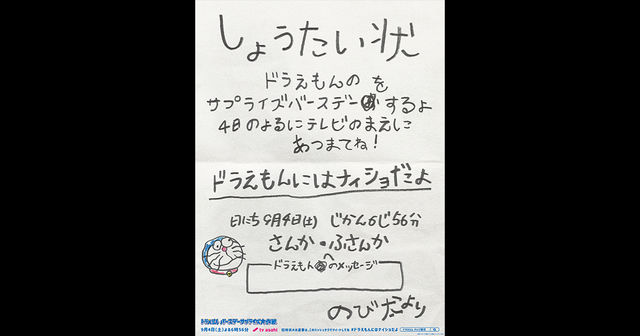 しょうたい状
ドラえもんの を
サプライズバースデー するよ
4日のよるにテレビのまえに
あつまてね!
ドラえもんにはナイショだよ
日にち 9月4日(土) じかん6じ56分
さんか・ふさんか
ドラえもん へのメッセージ
のび太より
9月4日(土)よる6時56分
tv asahi
#ドラえもんにはナイショだよ